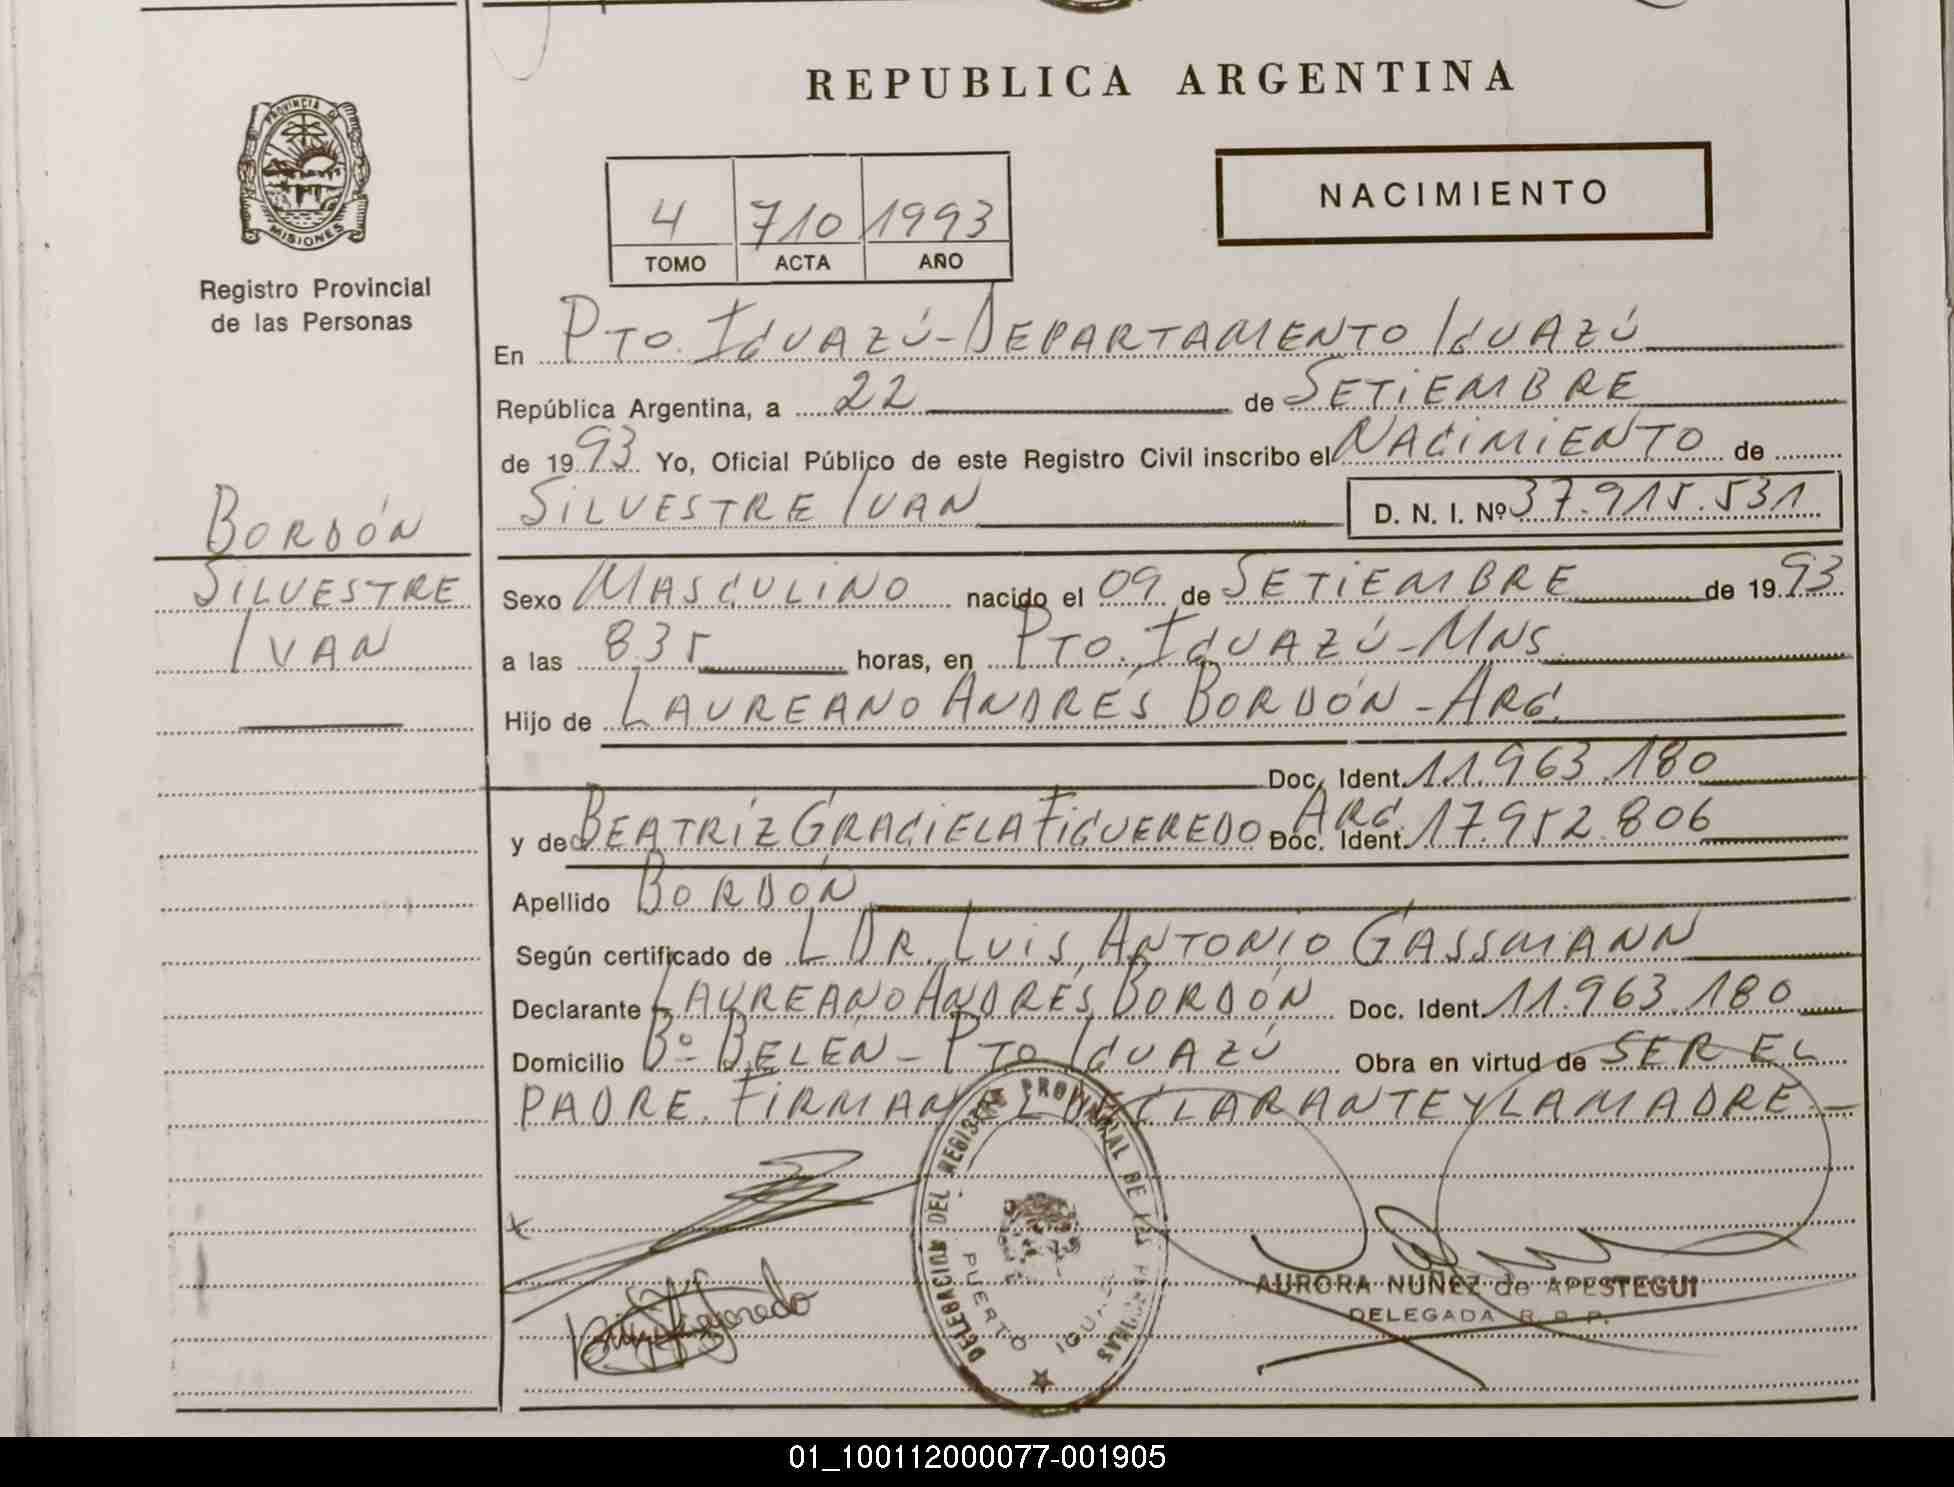 REPUBLICA ARGENTINA
PROVINCIA DE
MISIONES
Registro Provincial
de las Personas
NACIMIENTO
4 710 1993
TOMO ACTA AÑO
En PTO. IGUAZÚ-DEPARTAMENTO IGUAZÚ
República Argentina, a 22 de SETIEMBRE
de 1993 Yo, Oficial Público de este Registro Civil inscribo el NACIMIENTO de
SILVESTRE IVAN D. N. I. Nº 37.915.531
BORDÓN
SILVESTRE
IVAN
Sexo MASCULINO nacido el 09 de SETIEMBRE de 1993
a las 835 horas, en PTO. IGUAZÚ-MNS
Hijo de LAUREANO ANDRÉS BORDÓN - ARG.
Doc. Ident. 11.963.180
y de BEATRÍZ GRACIELA FIGUEREDO ARG. Doc. Ident. 17.952.806
Apellido BORDÓN
Según certificado de L DR. LUIS ANTONIO GASSMANN
Declarante LAUREANO ANDRÉS BORDÓN Doc. Ident. 11.963.180
Domicilio Bº BELÉN - PTO IGUAZÚ Obra en virtud de SER EL
PADRE. FIRMAN EL DECLARANTE Y LA MADRE -
DELEGACION DEL REGISTRO PROVINCIAL DE LAS PERSONAS
PUERTO IGUAZU
AURORA NUÑEZ de APESTEGUI
DELEGADA R. P. P.
01_100112000077-001905